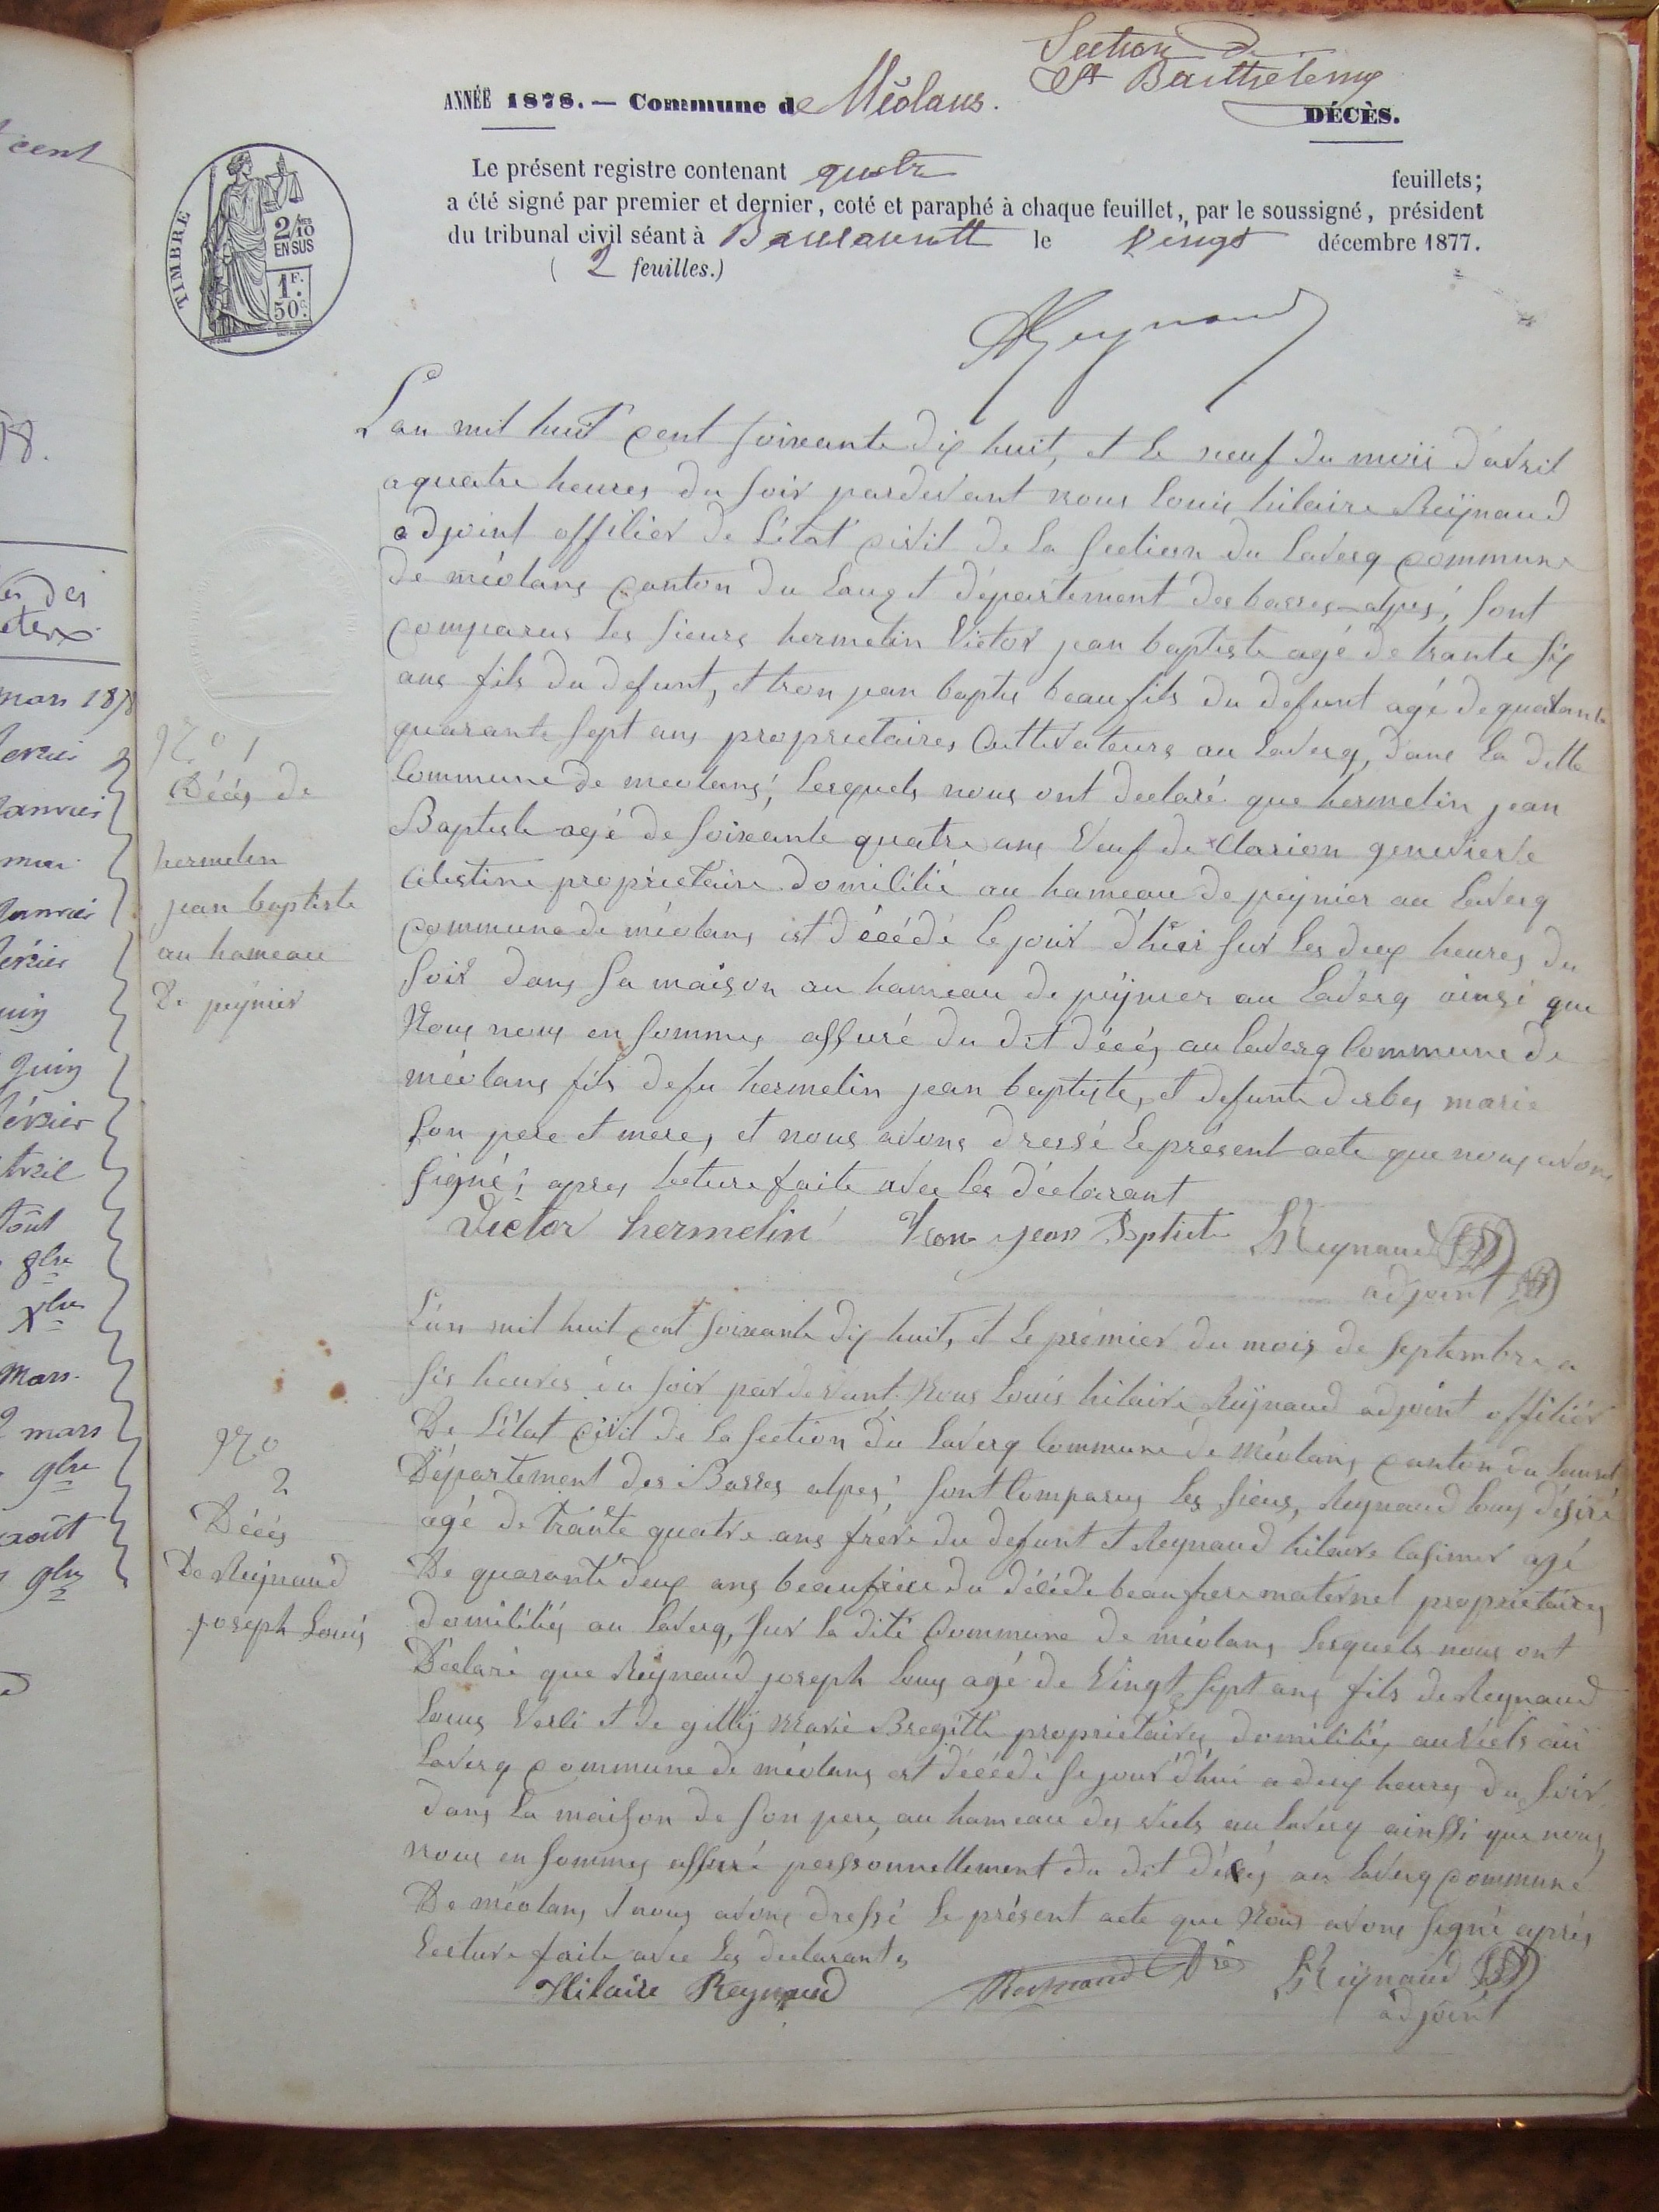 Section de
St Barthelemy
ANNÉE 1878. — Commune de Méolans.
DÉCÈS.
Le présent registre contenant quatre feuillets;
a été signé par premier et dernier, coté et paraphé à chaque feuillet, par le soussigné, président
du tribunal civil séant à Barcelonnette le vingt décembre 1877.
( 2 feuilles.)
TIMBRE
2/10 EN SUS
1F. 50c.
Reynaud
L'an mil huit cent soixante dix huit, et le neuf du mois d'avril
a quatre heures du soir pardevant nous louis hilaire Reÿnaud
adjoint offilier de l'état civil de la section du laverq commune
de méolans canton du lauzet département des basses-alpes, sont
comparus les sieurs hermelin Victor jean baptiste agé de trante six
ans fils du defunt, et tron jean baptis beau fils du defunt agé de quatante
quarante sept ans proprietaires Cultivateurs au laverq, dans la ditte
Commune de meolans; lesquels nous ont declaré que hermelin jean
Baptiste agé de soixante quatre ans Veuf de Clarion genevieve
Celestine propriétaire domilitié au hameau de peynier au laverq
commune de méolans est décédé le jour d'hier sur les deux heures du
soir dans sa maison au hameau de peÿnier au laverq ainsi que
Nous nous en sommes assuré du dit décés au laverq Commune de
méolans fils de fu hermelin jean baptiste, et defunte derbes marie
son pere et mere, et nous avons dressé le présent acte que nous avons
signé; apres leture faite avec les déclarant
Victor hermelin Tron jean Baptiste LReynaud
adjoint
N° 1
Décés de
hermelin
jean baptiste
au hameau
de peÿnier
L'an mil huit cent soixante dix huit, et le prémier du mois de septembre a
sis heures du soir par devant Nous Louis hilaire Reÿnaud adjoint offiliér
De l'état Civil de la section du laverq Commune de Méolans canton du lauzet
Département des Basses alpes; sont Comparus les sieurs, Reynaud louis désiré
agé de trante quatre ans frère du defunt et Reynaud hilaire Casimir agé
De quarante deux ans beaufrere du décédé beaufrere maternel proprietaires
domiliés au laverq, sur la dite Commune de méolans lesquels nous ont
Déclaré que Reÿnaud joseph louis agé de Vingt sept ans fils de Reynaud
louis et de gilly Marie Bregitte proprietaires domiliés au viels au
laverq commune de méolans est décédé se jour d'hui a deux heures du soir
dans la maison de son pere, au hameau des viels au laverq ainssi que nous
nous en sommes assuré perssonnellement du dit décés au laverq commune
De méolans et nous avons dressé le présent acte que Nous avons signé aprés
lecture faite avec les declarants
Hilaire Reynaud Reynaud Dré LReÿnaud
adjoint
N°
2
Décés
De Reÿnaud
joseph Louis